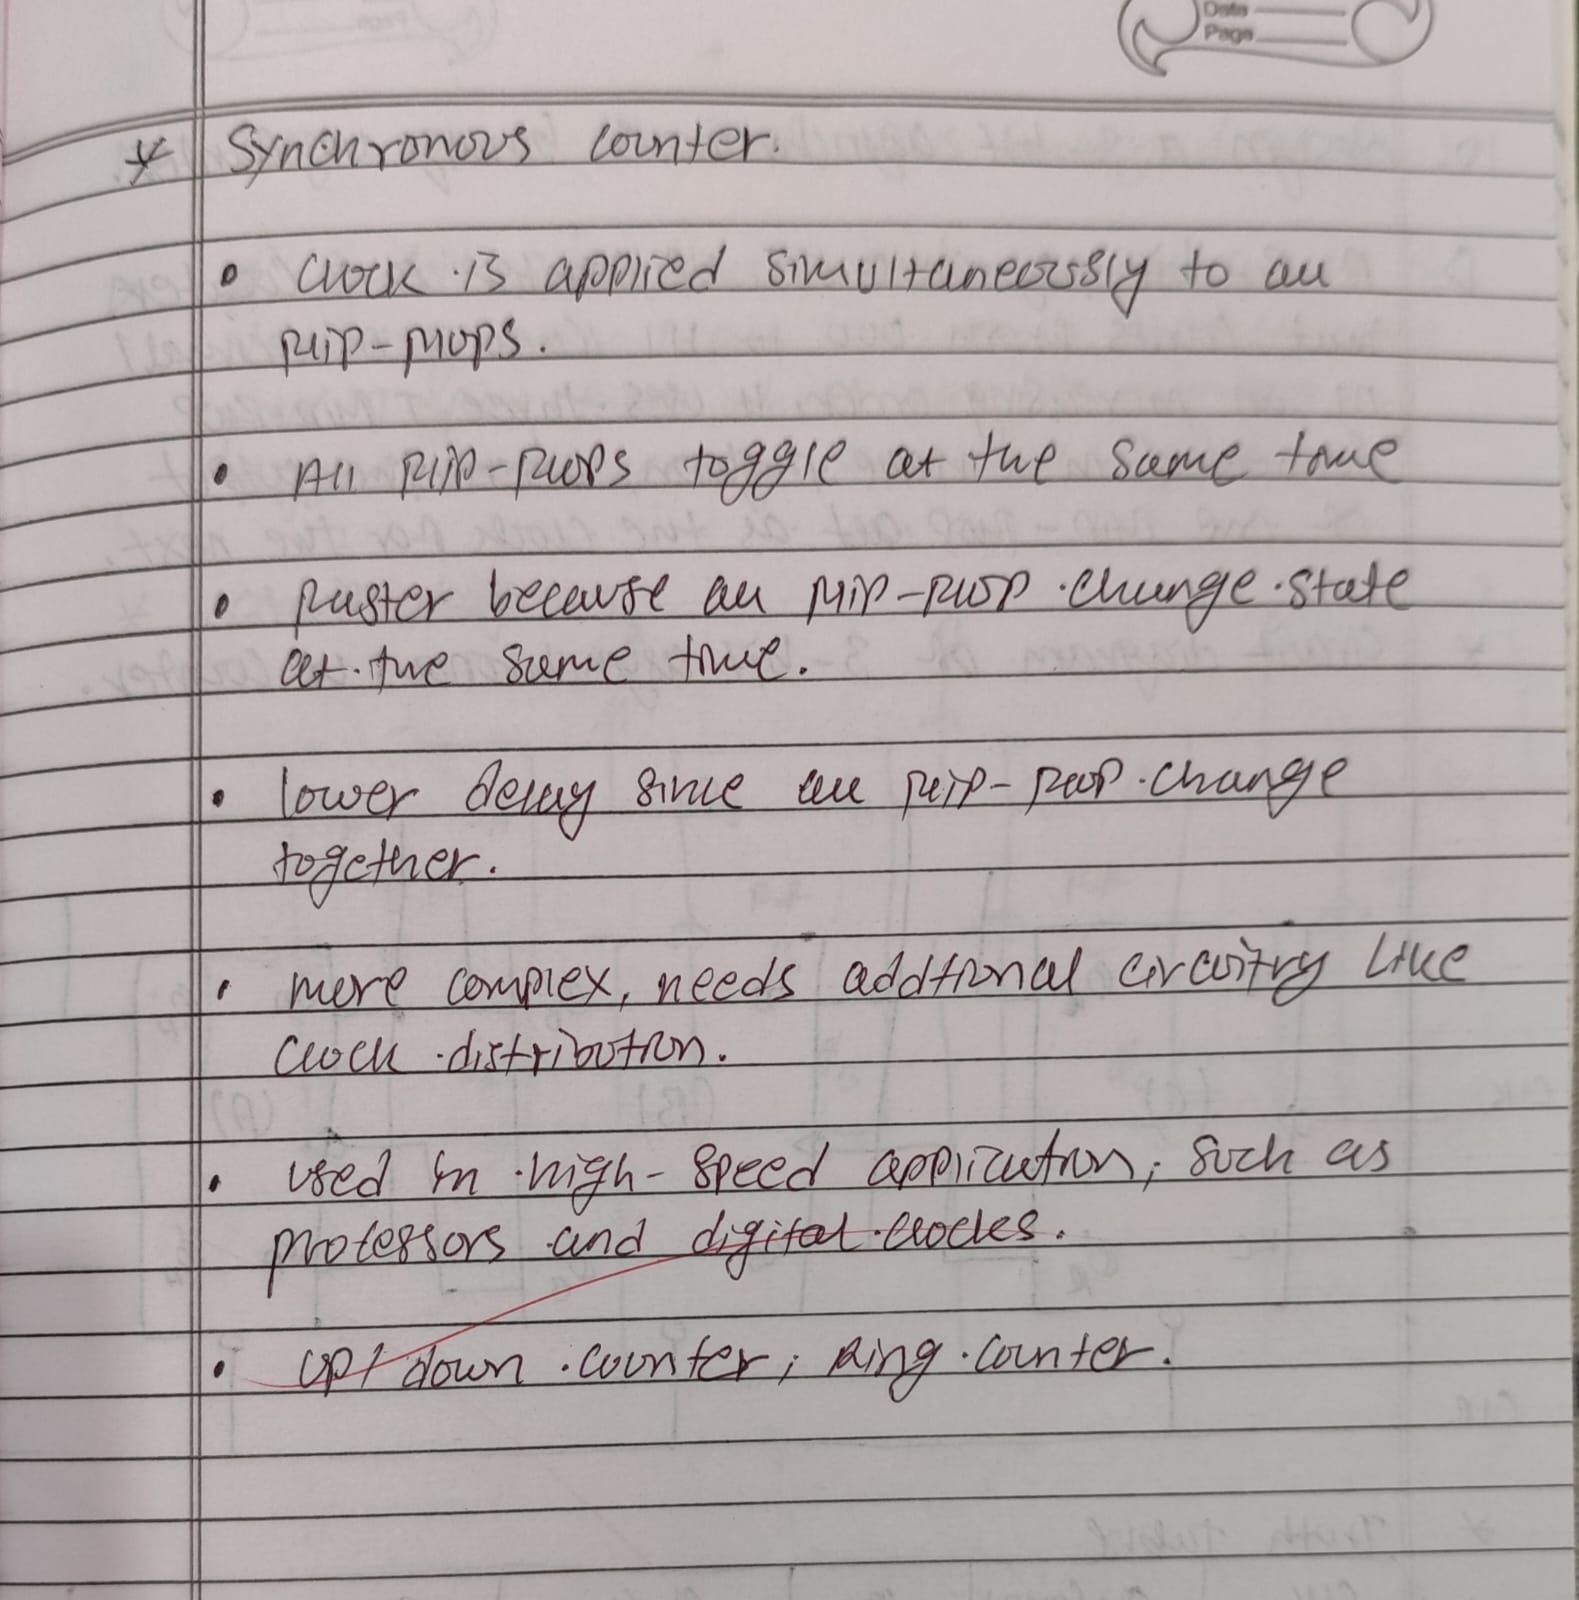 Date
Page
* Synchronous counter.
• clock is applied simultaneously to all
flip-flops.
• All flip-flops toggle at the same time
• faster because all flip-flop change state
at the same time.
• lower delay since all flip-flop change
together.
• more complex, needs addtional circuitry like
clock distribution.
• used in high-speed application, such as
processors and digital clocks.
• up/down counter, Ring counter.